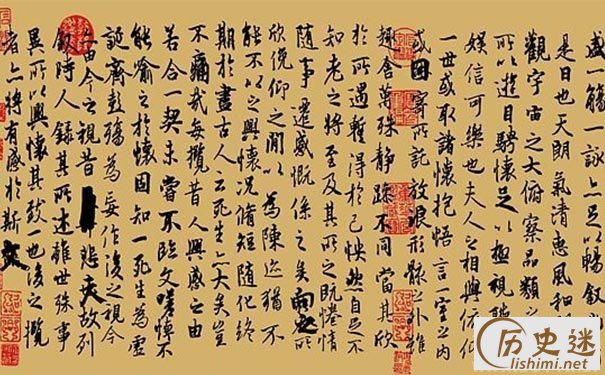 盛一觴一詠亦足以暢叙
是日也天朗氣清惠風和
觀宇宙之大俯察品類之
所以遊目騁懷足以極視聽
娛信可樂也夫人之相與俯仰
一世或取諸懷抱悟言一室之內
或因寄所託放浪形骸之外雖
趣舍萬殊静躁不同當其欣
於所遇蹔得於己怏然自足不
知老之將至及其所之既惓情
隨事遷感慨係之矣向之所
欣俛仰之閒以為陳迹猶不
能不以之興懷況脩短隨化終
期於盡古人云死生亦大矣豈
不痛哉每攬昔人興感之由
若合一契未嘗不臨文嗟悼不
能喻之於懷固知一死生為虛
誕齊彭殤為妄作後之視今
亦由今之視昔悲夫故列
叙時人錄其所述雖世殊事
異所以興懷其致一也後之攬
者亦將有感於斯文
历史迷
lishimi.net